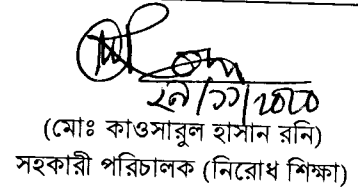 ২৯/১১/২০২০
(মোঃ কাওসারুল হাসান রনি)
সহকারী পরিচালক (নিরোধ শিক্ষা)